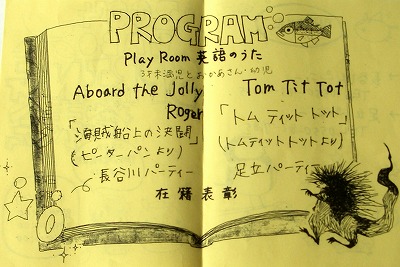 PROGRAM
Play Room 英語のうた
3才未満児とおかあさん・幼児
Aboard the Jolly Roger
「海賊船上の決闘」
(ピーターパンより)
長谷川パーティー
Tom Tit Tot
「トムティットトット」
(トムティットトットより)
足立パーティー
在籍表彰